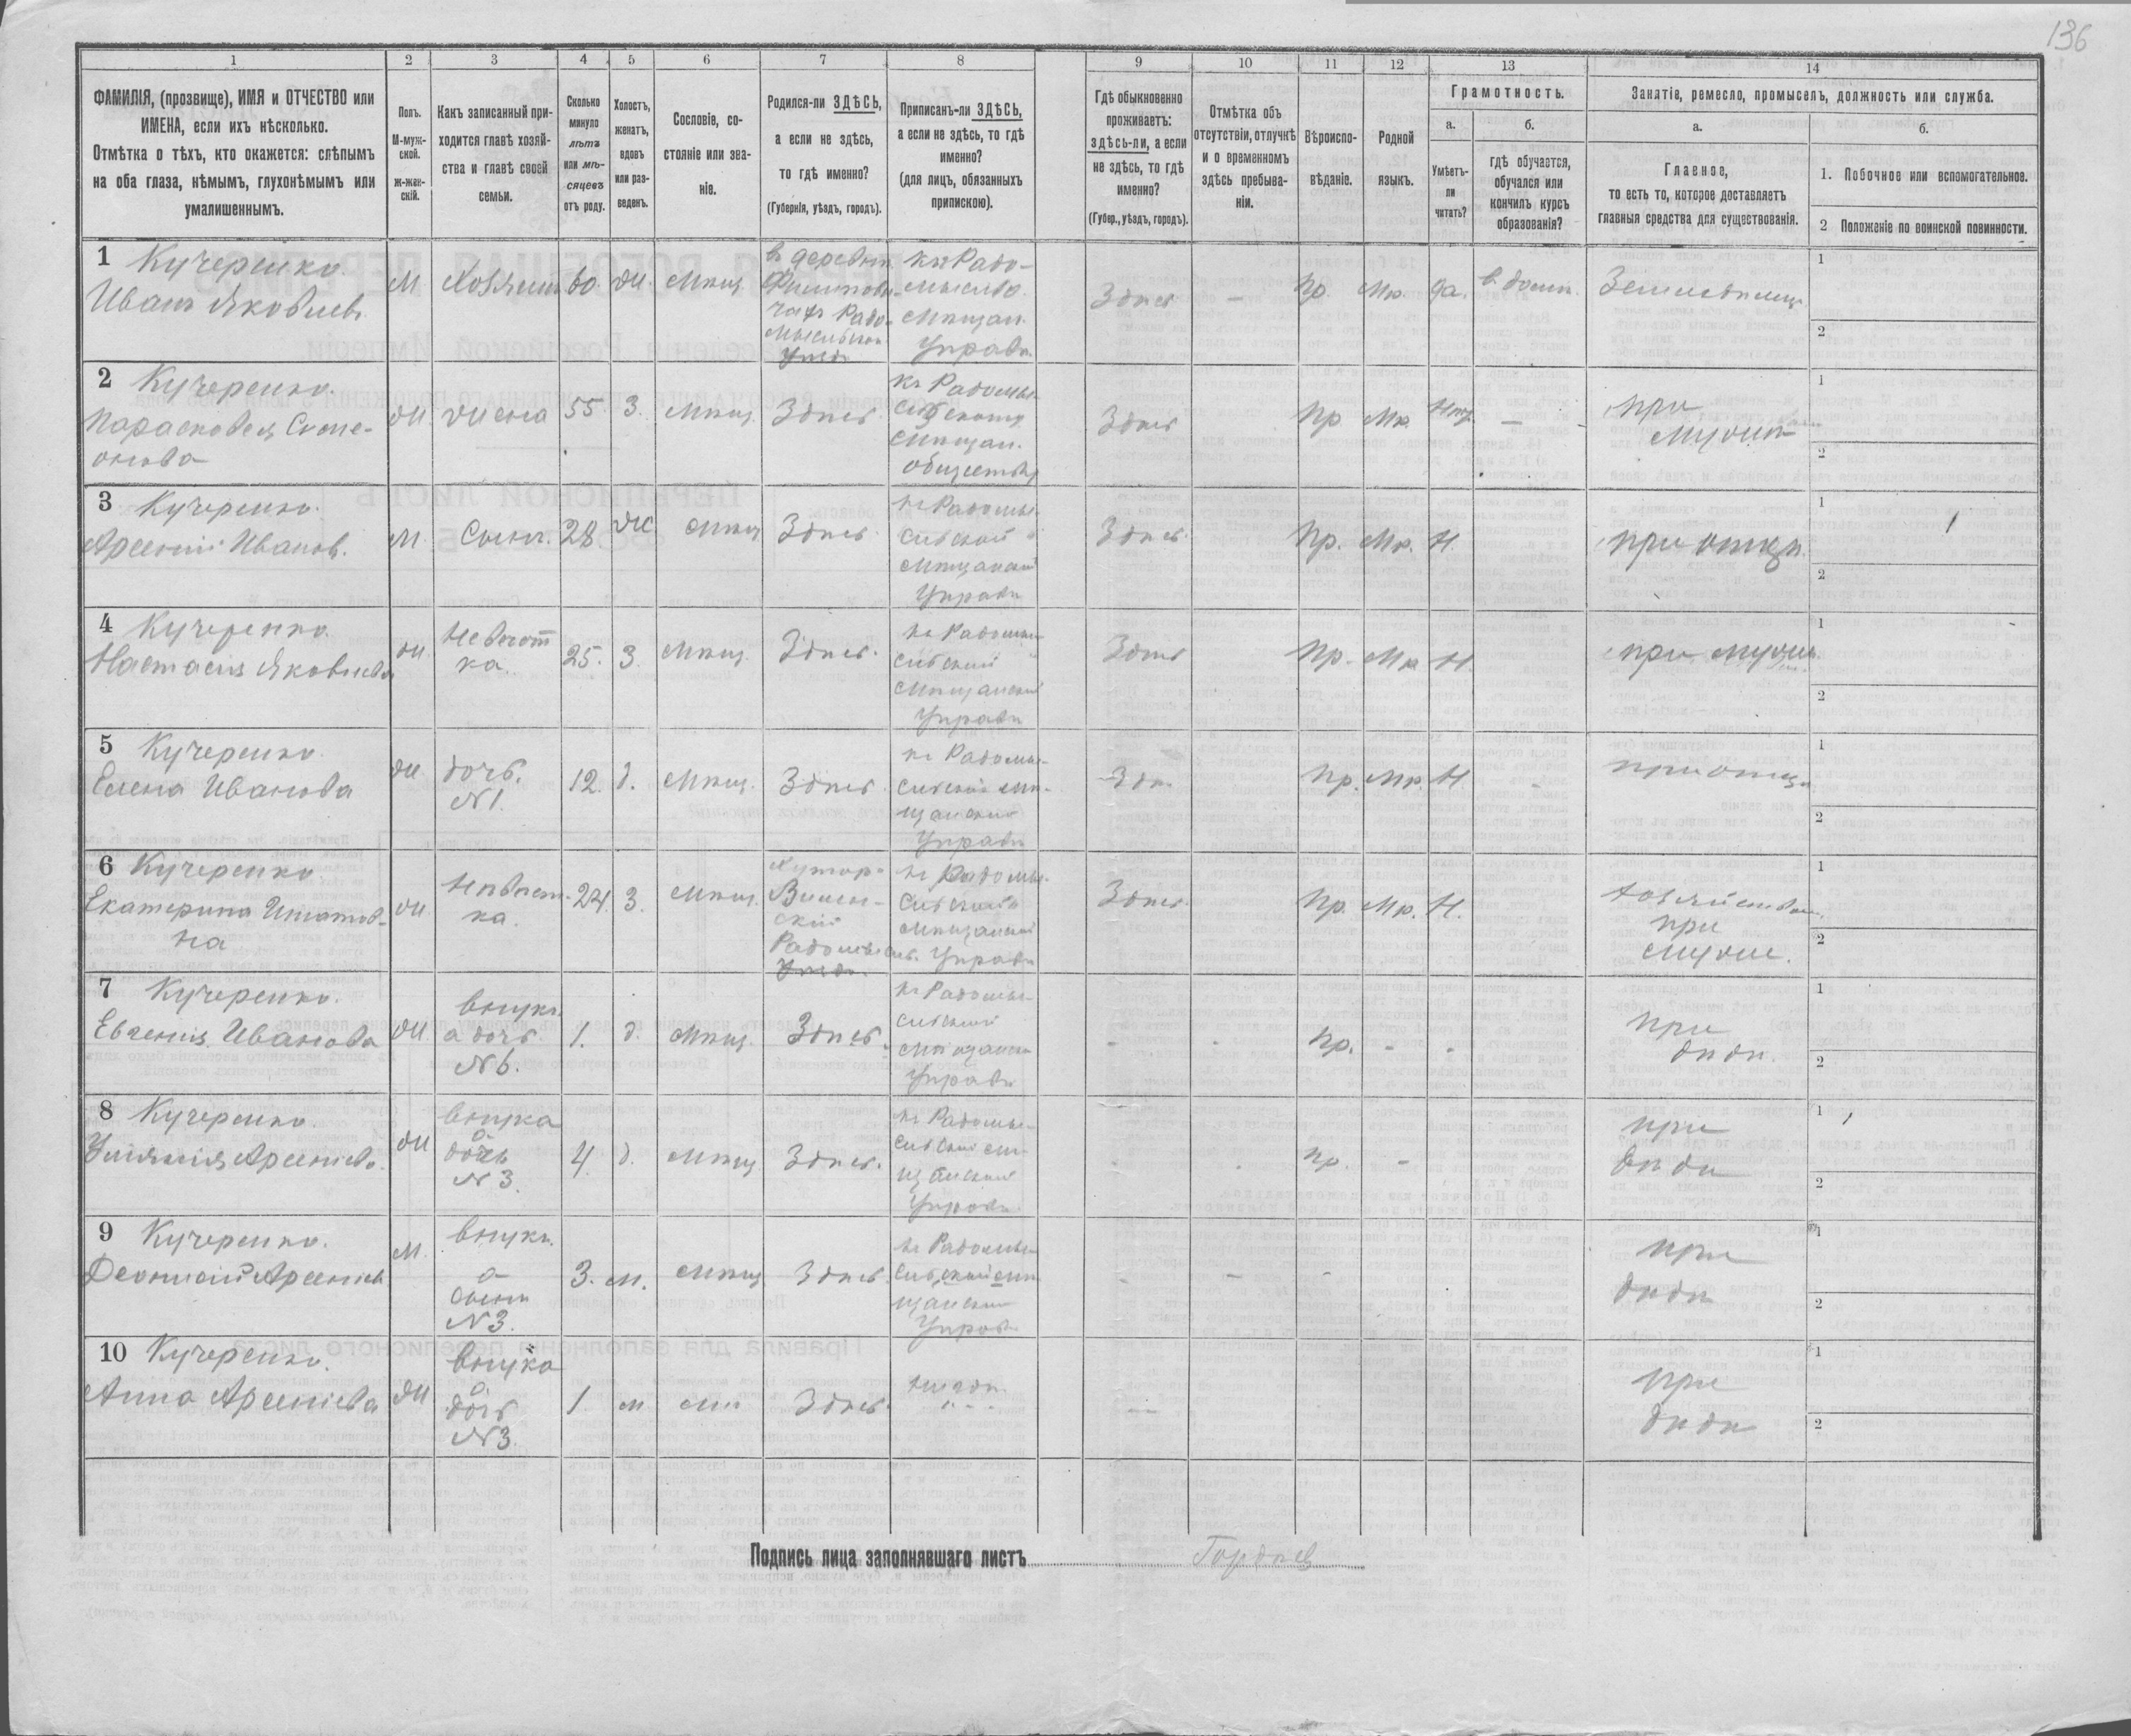 136
1
2
3
4
5
6
7
8
9
10
11
12
13
14
ФАМИЛІЯ, (прозвище), ИМЯ и ОТЧЕСТВО или
ИМЕНА, если ихъ нѣсколько.
Отмѣтка о тѣхъ, кто окажется: слѣпымъ
на оба глаза, нѣмымъ, глухонѣмымъ или
умалишеннымъ.
Полъ.
М-муж-
ской.
ж-жен-
скій.
Какъ записанный при-
ходится главѣ хозяй-
ства и главѣ своей
семьи.
Сколько
минуло
лѣтъ
или мѣ-
сяцевъ
отъ роду.
Холостъ,
женатъ,
вдовъ
или раз-
веденъ.
Сословіе, со-
стояніе или зва-
ніе.
Родился-ли ЗДѢСЬ,
а если не здѣсь,
то гдѣ именно?
(Губернія, уѣздъ, городъ).
Приписанъ-ли ЗДѢСЬ,
а если не здѣсь, то гдѣ
именно?
(для лицъ, обязанныхъ
припискою).
Гдѣ обыкновенно
проживаетъ:
здѣсь-ли, а если
не здѣсь, то гдѣ
именно?
(Губер., уѣздъ, городъ).
Отмѣтка объ
отсутствіи, отлучкѣ
и о временномъ
здѣсь пребыва-
ніи.
Вѣроиспо-
вѣданіе.
Родной
языкъ.
Грамотность.
а.
Умѣетъ-
ли
читать?
б.
гдѣ обучается,
обучался или
кончилъ курсъ
образованія?
Занятіе, ремесло, промыселъ, должность или служба.
а.
Главное,
то есть то, которое доставляетъ
главныя средства для существованія.
б.
1. Побочное или вспомогательное.
2 Положеніе по воинской повинности.
1 Кучеренко.
Иванъ Яковлевъ
М
Хозяинъ
60.
ж.
Мѣщ.
въ деревнѣ
Радо-
мысльск.
Уѣзд.
къ Радо-
мысльс.
Мѣщан.
Управѣ.
Здѣсь
-
Пр.
Мр.
да.
в дом.
Земледѣлец
1
2
2 Кучеренко.
Парасковея Симе-
онова
ж
жена
55.
З.
Мѣщ.
Здѣсь
къ Радомы-
сльскому
Мѣщан.
обществу
Здѣсь
Пр.
Мр.
Нет.
-
при
мужѣ
1
2
3 Кучеренко.
Арсеній Иванов.
М.
Сынъ.
28
ж
Мѣщ
Здѣсь
къ Радомы-
сльской
мѣщанской
Управѣ
Здѣсь.
Пр.
Мр.
Н.
при отцѣ.
1
2
4 Кучеренко.
Настасія Яковлева
ж
Невѣст
ка.
25.
З.
Мѣщ.
Здѣсь.
къ Радомы-
сльской
мѣщанской
Управѣ
Здѣсь
Пр.
Мр
Н.
при мужѣ
1
2
5 Кучеренко.
Елена Иванова
ж
дочь.
N 1.
12.
д.
Мѣщ.
Здѣсь.
къ Радомы-
сльской мѣ-
щанской
Управѣ
Зд.
Пр.
Мр.
Н
-
при отцѣ
1
2
6 Кучеренко.
Екатерина Игнатов-
на
ж
Невѣст-
ка.
24.
З.
Мѣщ.
Хутор
Радомысль.
Уѣзд.
къ Радомы-
сльской
мѣщанской
Управѣ
Здѣсь.
Пр.
Мр.
Н.
при
мужѣ.
1
2
7 Кучеренко.
Евгенія Иванова
ж
внука.
а дочь
N 6.
1.
д.
Мѣщ.
Здѣсь
къ Радомы-
сльской
мѣщанск.
Управѣ
-
-
Пр.
-
-
при
дѣдѣ.
1
2
8 Кучеренко.
Арсеніева.
ж
внука
а
дочь
N 3.
4.
д.
Мѣщ
Здѣсь.
къ Радомы-
сльской мѣ-
щанской
Управѣ
-
-
пр.
-
при
дѣдѣ
1
2
9 Кучеренко.
Арсеніев
М.
внукъ.
а
сынъ
N 3.
3.
М.
Мѣщ
Здѣсь.
къ Радомы-
сльской мѣ-
щанской
Управ.
-
-
-
при
дѣдѣ
1
2
10 Кучеренко.
Анна Арсеніева
ж
внука
а
дочь
N 3.
1
м
Мѣщ
Здѣсь.
при
дѣдѣ
1
2
Подпись лица заполнявшаго листъ